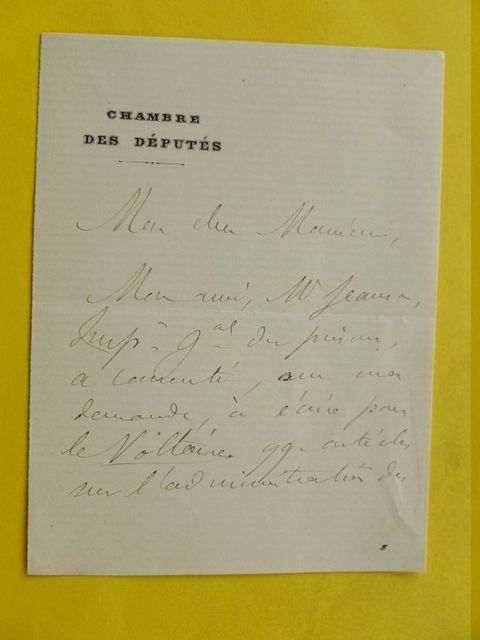 CHAMBRE
DES DÉPUTÉS
Mon cher Monsieur,
Mon ami, Mr
Inspr gal des prisons,
a consenti, sur ma
demande, à écrire pour
le Voltaire qqs articles
sur l'administration des